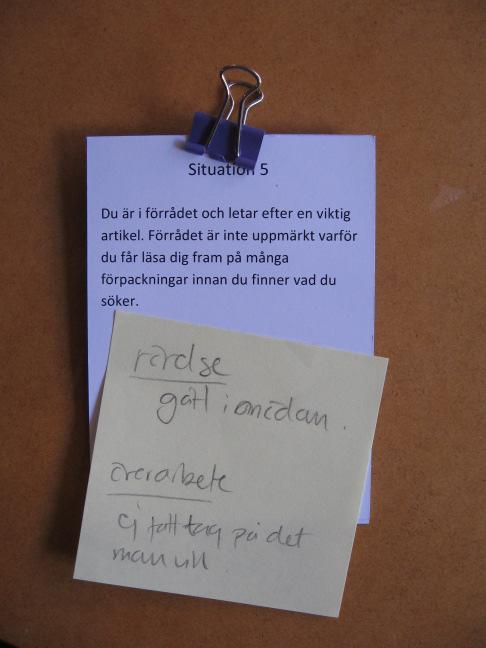 Situation 5
Du är i förrådet och letar efter en viktig
artikel. Förrådet är inte uppmärkt varför
du får läsa dig fram på många
förpackningar innan du finner vad du
söker.
rörelse
gått i onödan.
överarbete
ej fått tag på det
man vill